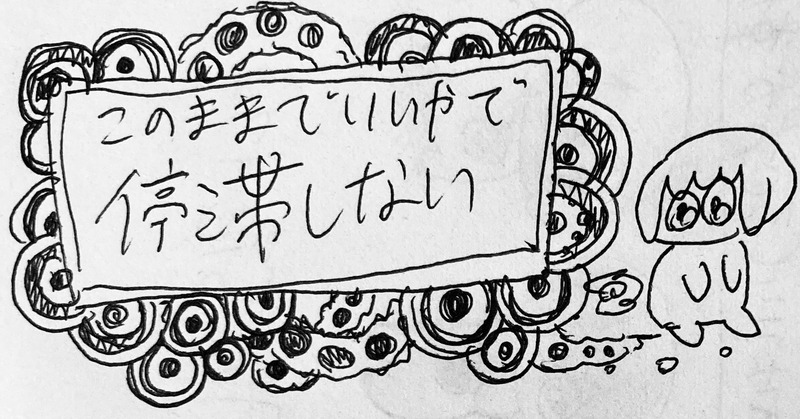 このままでいいやで
停滞しない